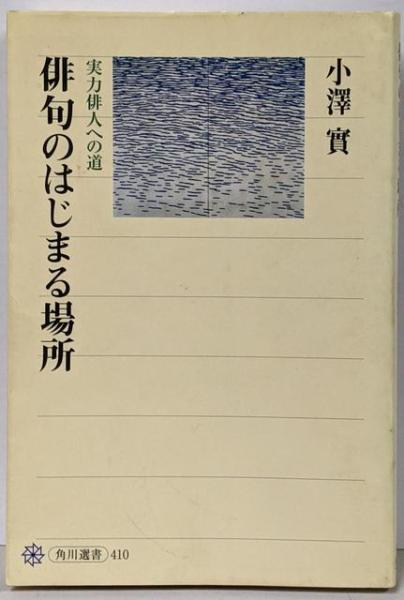 小澤實
実力俳人への道
俳句のはじまる場所
角川選書 410